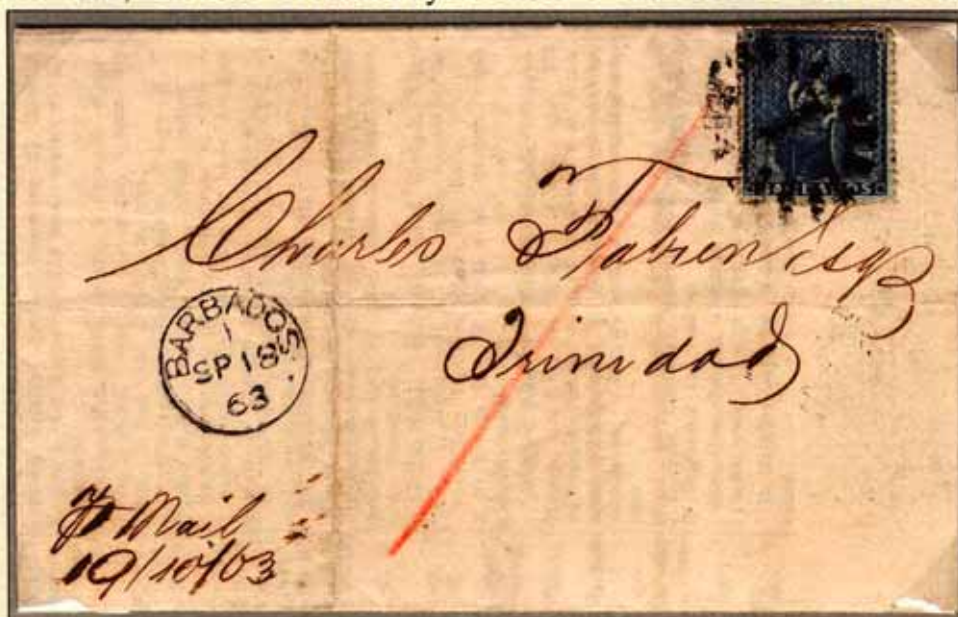 BARBADOS
Charles Fabien Esq
Trinidad
BARBADOS
1
SP 18
63
Pr Mail